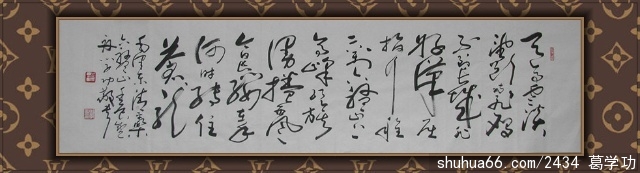 天高云淡
望断南飞雁
不到长城非
好汉屈
指行程
二万六盘山上
高峰红旗
漫卷西风
今日长缨在手
何时缚住
苍龙
毛泽东清平乐
六盘山
shuhua66.com/2434 葛学功